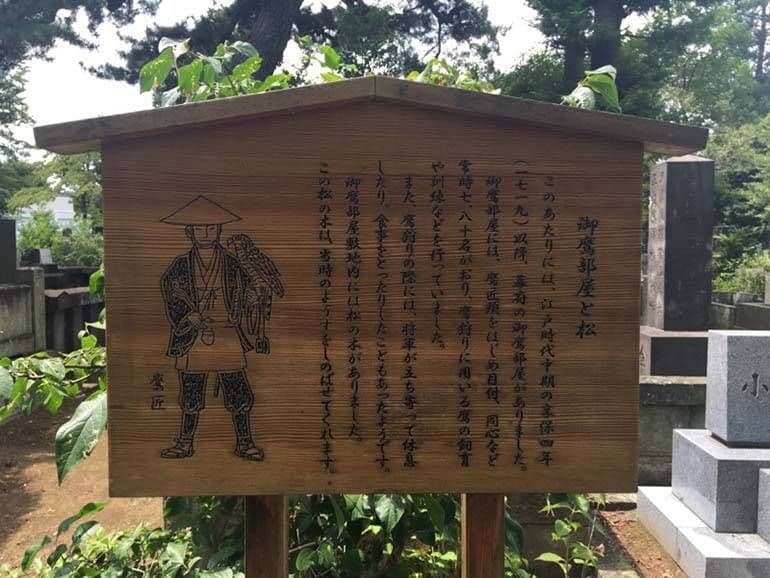 御鷹部屋と松
このあたりには、江戸時代中期の享保四年
(一七一九)以降、幕府の御鷹部屋がありました。
御鷹部屋には、鷹匠頭をはじめ目付、同心など
常時七、八十名がおり、鷹狩りに用いる鷹の飼育
や訓練などを行っていました。
また、鷹狩りの際には、将軍が立ち寄って休息
したり、食事をとったりしたこともあったようです。
御鷹部屋敷地内には松の木がありました。
この松の木は、当時のようすをしのばせてくれます。
鷹匠
小